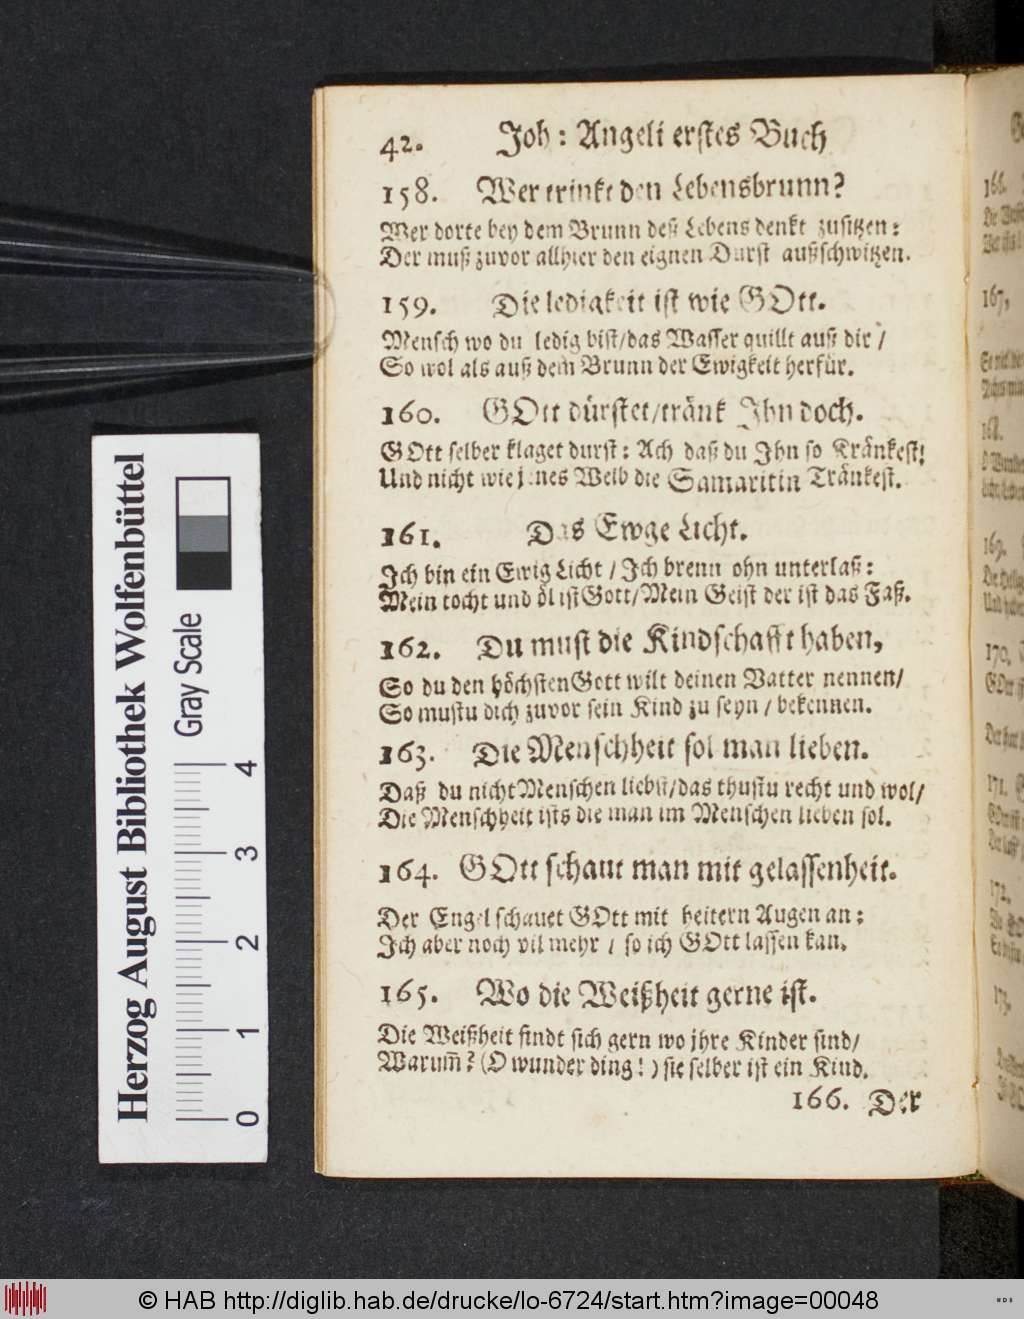 42. Joh: Angeli erſtes Buch
158. Wer trinkt den Lebensbrunn?
Wer dorte bey dem Brunn deß Lebens denkt zuſitzen:
Der muß zuvor allhier den eignen Durſt außſchwitzen.
159. Die ledigkeit iſt wie GOtt.
Menſch wo du ledig biſt/das Waſſer quillt auß dir/
So wol als auß dem Brunn der Ewigkeit herfür.
160. GOtt dürſtet/tränk Ihn doch.
GOtt ſelber klaget durſt: Ach daß du Ihn ſo Kränkeſt!
Und nicht wie jenes Weib die Samaritin Tränkeſt.
161. Das Ewge Licht.
Ich bin ein Ewig Licht / Ich brenn ohn unterlaß:
Mein tocht und öl iſt Gott/Mein Geiſt der iſt das Faß.
162. Du muſt die Kindſchafft haben,
So du den höchſten Gott wilt deinen Vatter nennen/
So muſtu dich zuvor ſein Kind zu ſeyn / bekennen.
163. Die Menſchheit ſol man lieben.
Daß du nicht Menſchen liebſt/das thuſtu recht und wol/
Die Menſchheit iſts die man im Menſchen lieben ſol.
164. GOtt ſchaut man mit gelaſſenheit.
Der Engel ſchauet GOtt mit heitern Augen an:
Ich aber noch vil mehr / ſo ich GOtt laſſen kan.
165. Wo die Weißheit gerne iſt.
Die Weißheit findt ſich gern wo jhre Kinder ſind/
Warum̃? (O wunder ding!) ſie ſelber iſt ein Kind.
166. Der
166.
167,
168.
169.
170.
171.
172.
173.
Herzog August Bibliothek Wolfenbüttel
Gray Scale
0 1 2 3 4
© HAB http://diglib.hab.de/drucke/lo-6724/start.htm?image=00048
WDB